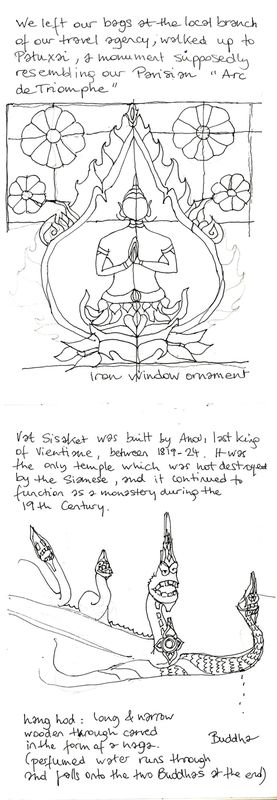 We left our bags at the local branch
of our travel agency, walked up to
Patuxai, a monument supposedly
resembling our Parisian "Arc
de Triomphe"
Iron Window ornament
Vat Sisaket was built by Anou, last king
of Vientiane, between 1819-24. It was
the only temple which was not destroyed
by the Siamese, and it continued to
function as a monastery during the
19th Century.
hang hod : long & narrow
wooden through carved
in the form of a naga.
(perfumed water runs through
and falls onto the two Buddhas at the end)
Buddha